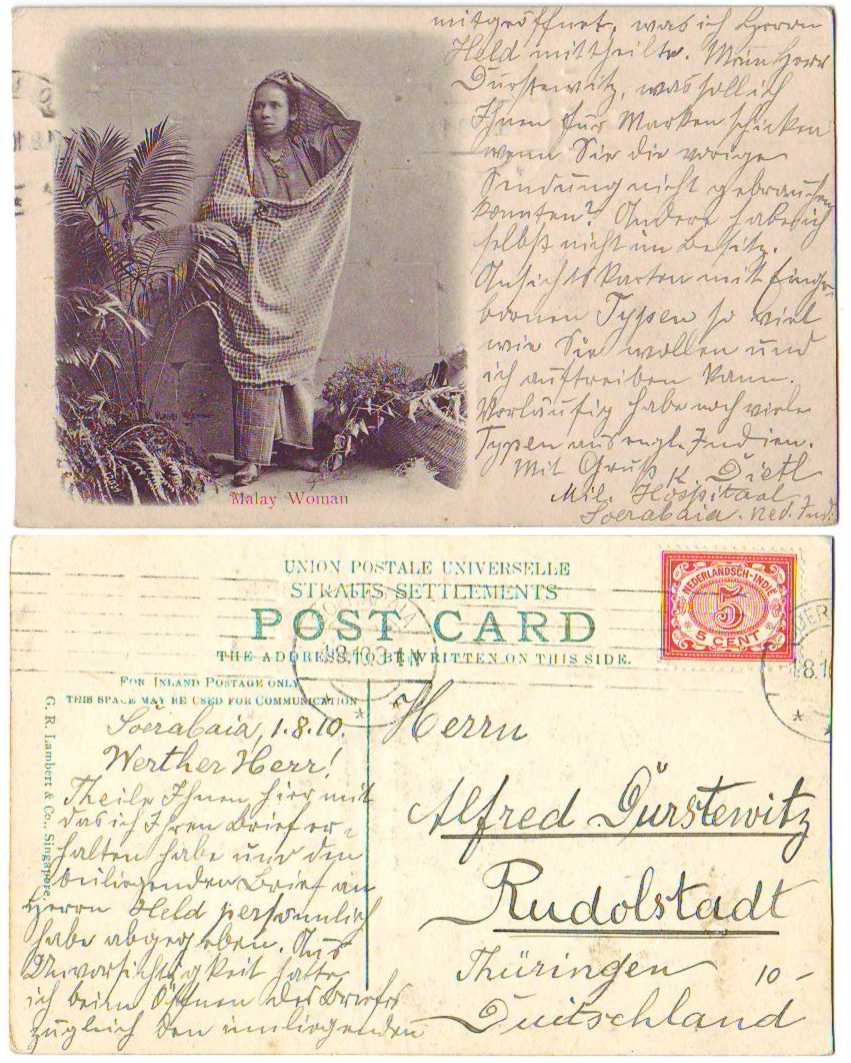 mitgeöffnet, was ich Herrn
Held mittheilte. Mein Herr
Dürstewitz, was soll ich
Ihnen für Marken schicken
wenn Sie die vorige
Sendung nicht gebrauchen
konnten? Andere habe ich
selbst nicht im Besitz.
Ansichtskarten mit Einge-
bornen Typen so viel
wie Sie wollen und
ich auftreiben kann.
Vorläufig habe noch viele
Typen aus engl. Indien.
Mit Gruß K. Dietl
Mil. Hospitaal
Soerabaia. Ned. Ind.
Malay Woman
UNION POSTALE UNIVERSELLE
STRAITS SETTLEMENTS
POST CARD
THE ADDRESS TO BE WRITTEN ON THIS SIDE.
NEDERLANDSCH-INDIË
5
5 CENT
FOR INLAND POSTAGE ONLY
THIS SPACE MAY BE USED FOR COMMUNICATION
G. R. Lambert & Co., Singapore.
Soerabaia, 1.8.10.
Werther Herr!
Theile Ihnen hier mit
das ich Ihren Brief er-
halten habe und den
beiliegenden Brief an
Herrn Held persönnlich
habe abgegeben. Aus
Unvorsichtigkeit hatte
ich beim Öffnen des Briefes
zugleich den innliegenden
Herrn
Alfred Dürstewitz
Rudolstadt
Thüringen 10-
Duitschland